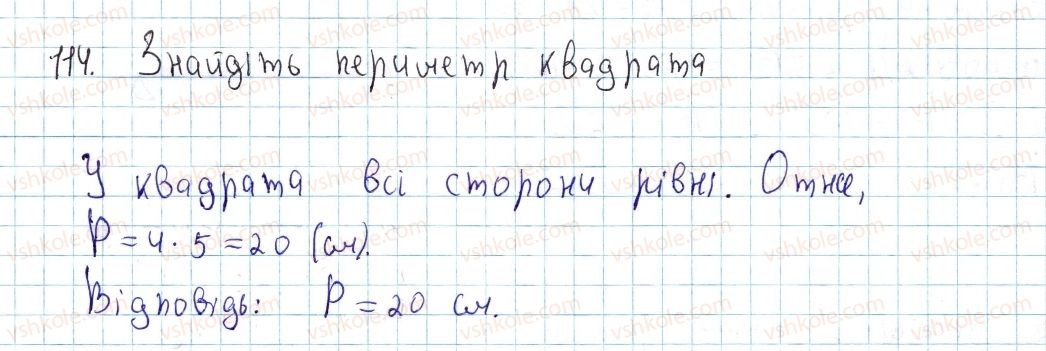 114. Знайдіть периметр квадрата
У квадрата всі сторони рівні. Отже,
P = 4 · 5 = 20 (см).
Відповідь: P = 20 см.